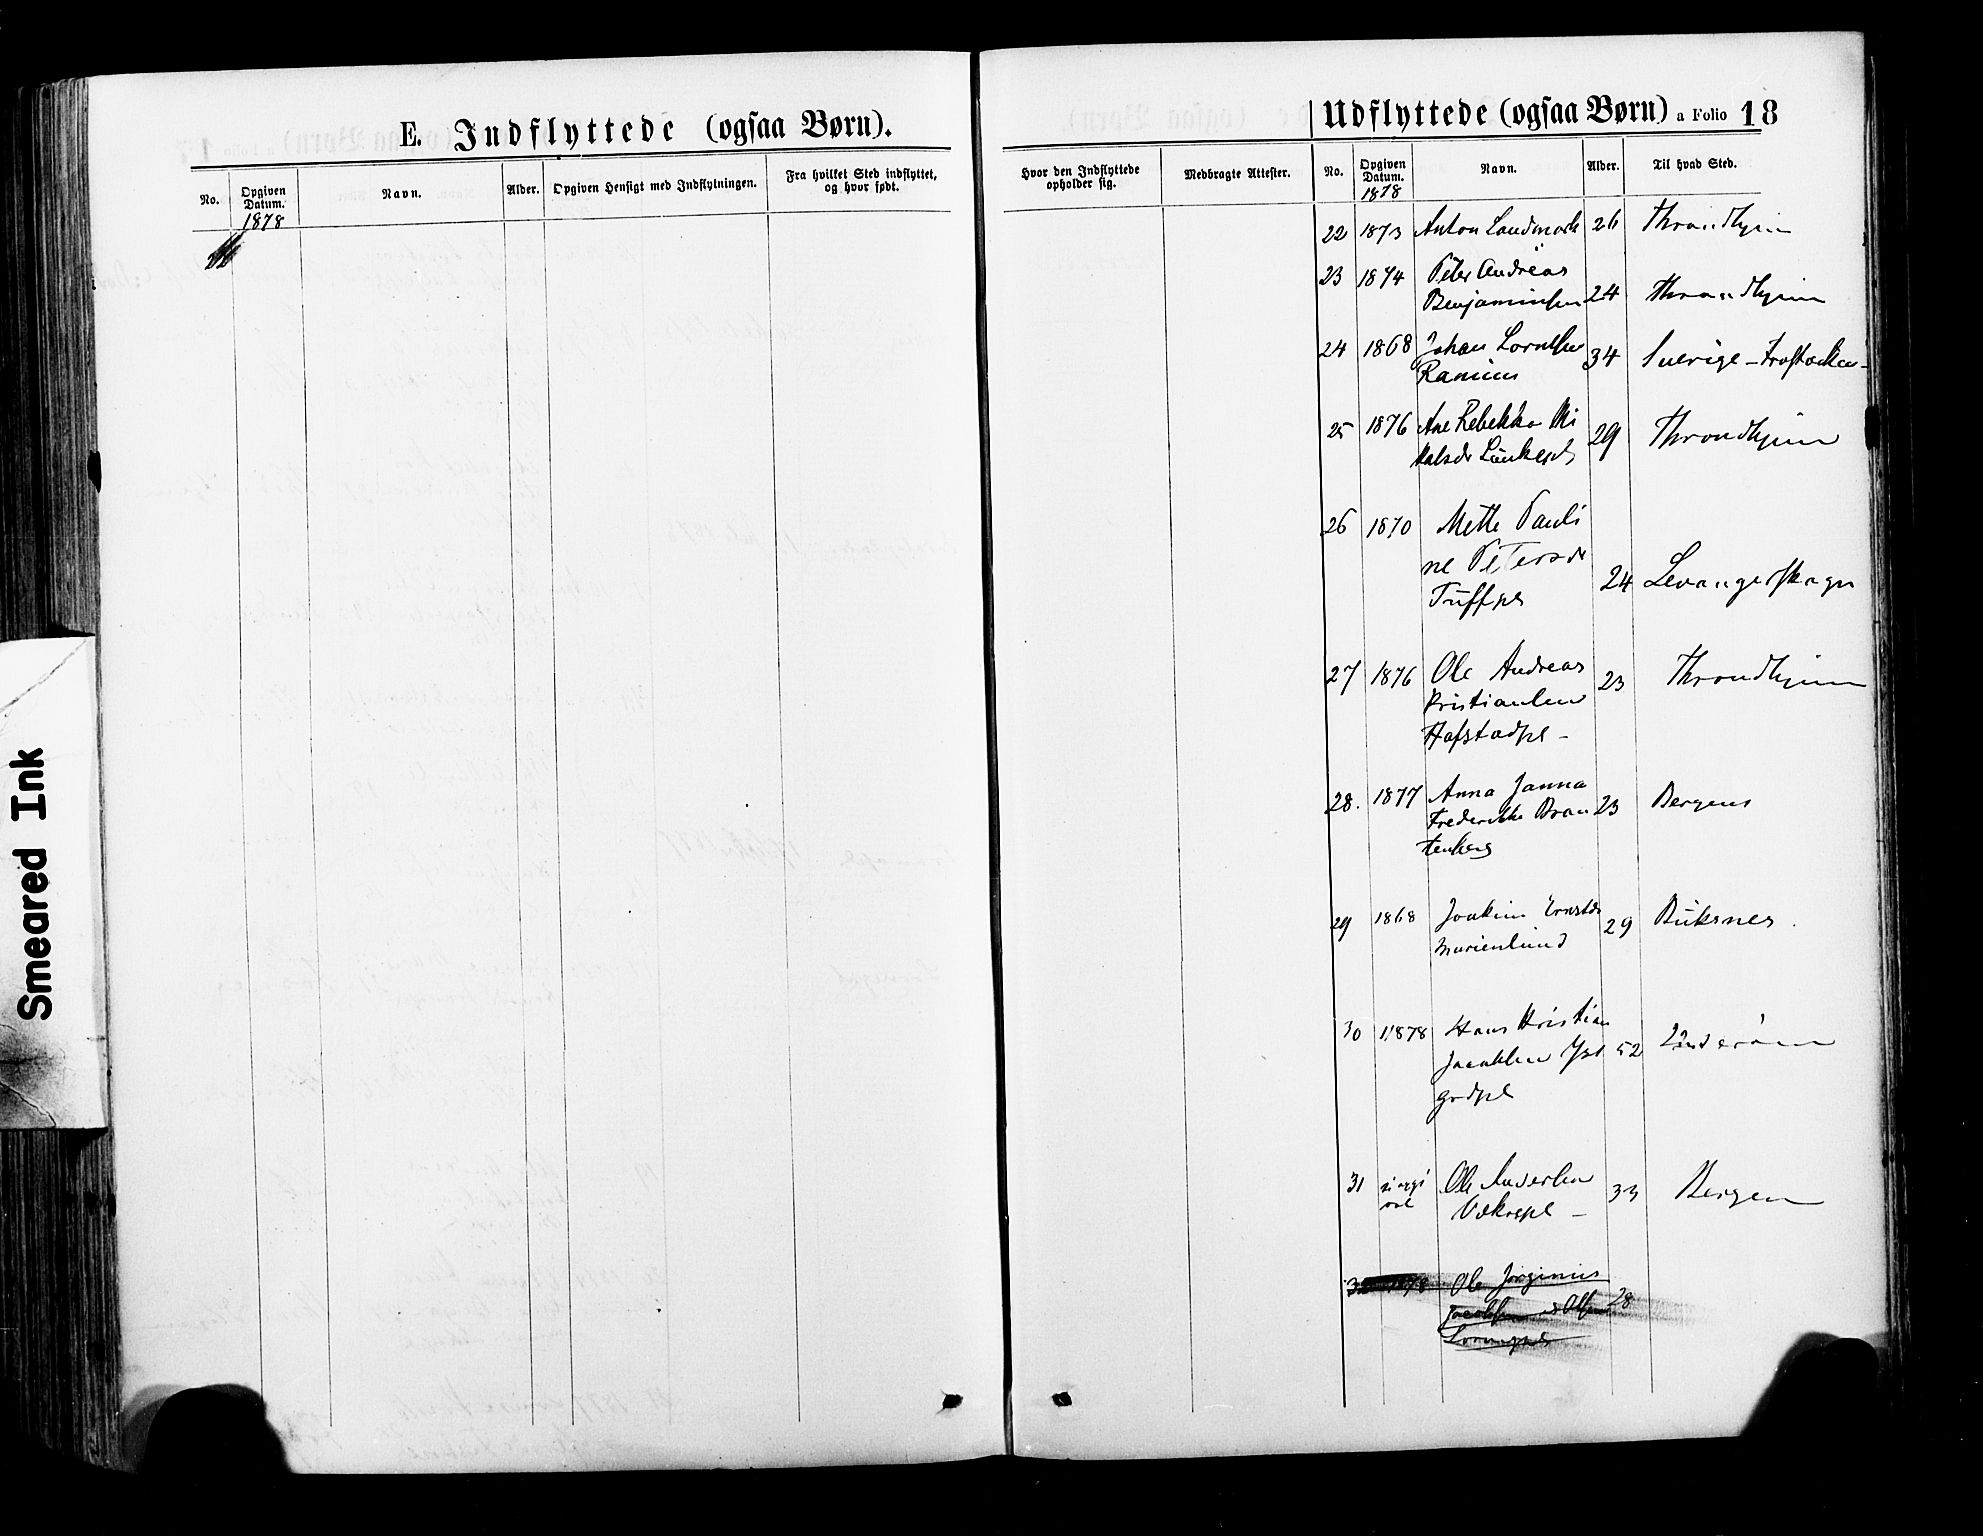 E. Indflyttede (ogsaa Børn).
No.
Opgiven Datum.
1878
Navn.
Alder.
Opgiven Hensigt med Indflytningen.
Fra hvilket Sted indflyttet, og hvor født.
Smeared Ink
Udflyttede (ogsaa Børn) a Folio 18
Hvor den Indflyttede opholder sig.
Medbragte Attester.
No.
Opgiven Datum.
1878
Navn.
Alder.
Til hvad Sted.
22 1873 Anton Landmark 26 Throndhjem
23 1874 Peter Andreas
Benjaminsen 24 Throndhjem
24 1868 Johan 34 Sverige -
25 1876 Ane Rebekka Mi 29 Throndhjem
26 1870 Mette Pauli
ne Petersdr 24 Levangerskogn
27 1876 Ole Andreas 23 Throndhjem
Kristiansen
Hafstadpl -
28. 1877 Anna Janna
Frederikke Bran 23 Bergens
tenberg
29 1868 Joakim Ernstsn 29 Buksnes
Marienlund
30 1878 Hans Kristian
Jacobsen 52 Inderøen
31 ei oppi Ole Andersen 33 Bergen
32 1878 Ole Jørginius 28
Jacobsen